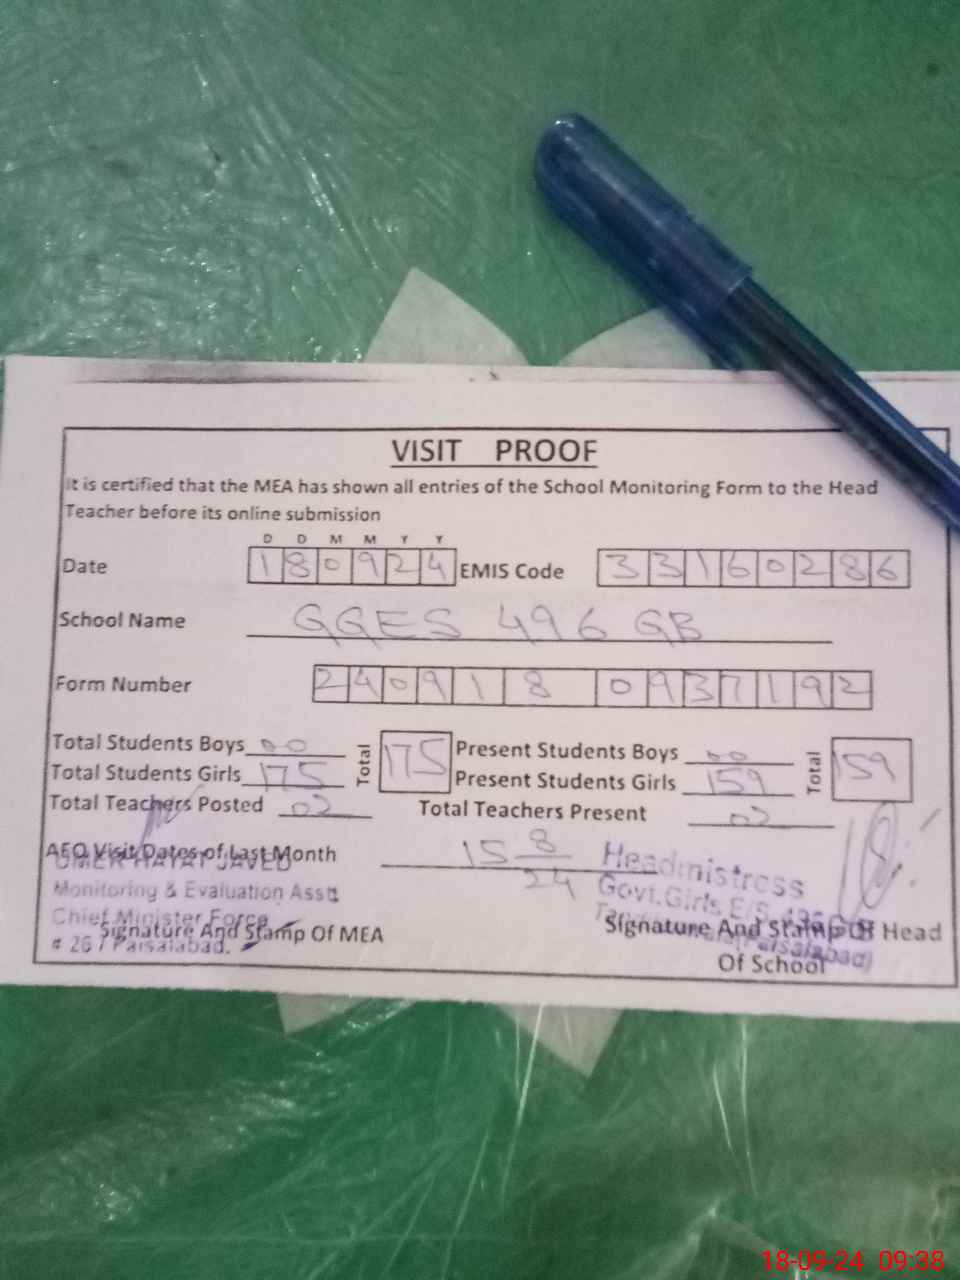 VISIT PROOF
It is certified that the MEA has shown all entries of the School Monitoring Form to the Head
Teacher before its online submission
D D M M Y Y
Date 180924 EMIS Code 33160286
School Name GGES 496 GB
Form Number 2409180937192
Total Students Boys 00 Total 175 Present Students Boys 00 Total 159
Total Students Girls 175 Present Students Girls 159
Total Teachers Posted 02 Total Teachers Present 02
AEO Visit Dates of Last Month 15 8/24
UMER HAYAT JAVED
Monitoring & Evaluation Asstt
Chief Minister Force
# 267 Faisalabad.
Signature And Stamp Of MEA
Headmistress
Govt. Girls E/S
(Faisalabad)
Signature And Stamp Of Head
Of School
18-09-24 09:38